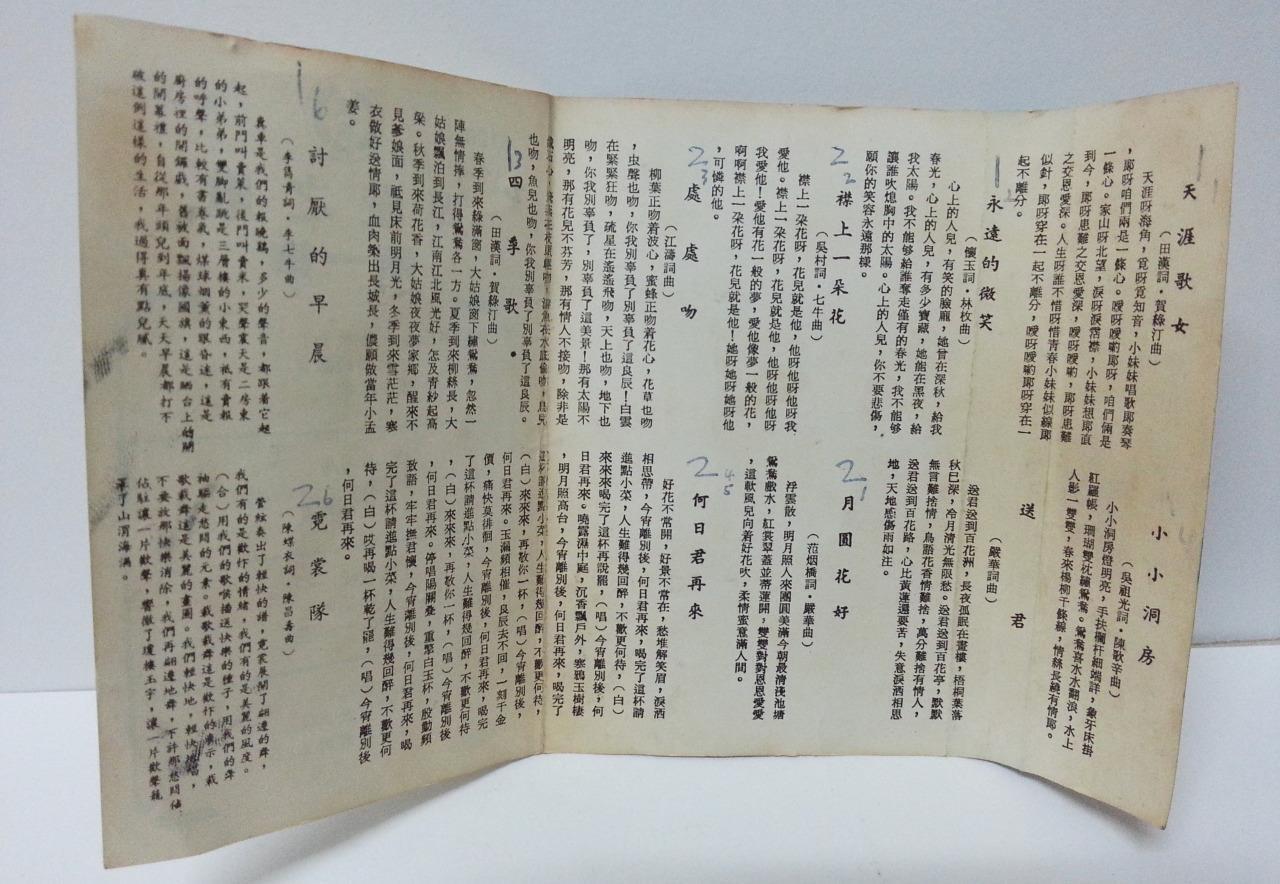 天涯歌女
(田漢詞・賀綠汀曲)
天涯呀海角,覓呀覓知音,小妹妹唱歌郎奏琴
,郎呀咱們兩是一條心。噯呀噯喲郎呀,咱們倆是
一條心。家山呀北望,淚呀淚霑襟,小妹妹想郎直
到今,郎呀患難之交恩愛深,噯呀噯喲,郎呀患難
之交恩愛深。人生呀誰不惜呀惜青春小妹妹似線郎
似針,郎呀穿在一起不離分,噯呀噯喲郎呀穿在一
起不離分。
永遠的微笑
(懷玉詞・林枚曲)
心上的人兒,有笑的臉龐,她曾在深秋,給我
春光,心上的人兒,有多少寶藏,她能在黑夜,給
我太陽。我不能够給誰奪走僅有的春光,我不能够
讓誰吹熄胸中的太陽。心上的人兒,你不要悲傷,
願你的笑容永遠那樣。
22
襟上一朵花
(吳村詞・七牛曲)
襟上一朵花呀,花兒就是他,他呀他呀他呀我
愛他。襟上一朵花呀,花兒就是他,他呀他呀他呀
我愛他!愛他有花一般的夢,愛他像夢一般的花,
啊啊襟上一朵花呀,花兒就是他!她呀她呀她呀他
,可憐的他。
23
處處吻
(江濤詞曲)
柳葉正吻着波心,蜜蜂正吻着花心,花草也吻
,虫聲也吻,你我別辜負了別辜負了這良辰!白雲
在緊緊狂吻,疏星在遙遙飛吻,天上也吻,地下也
吻,你我別辜負了,別辜負了這美景!那有太陽不
明亮,那有花兒不芬芳,那有情人不接吻,除非是
也吻,魚兒也吻,你我別辜負了別辜負了這良辰。
13
四季歌
(田漢詞・賀綠汀曲)
春季到來綠滿窗,大姑娘窗下繡鴛鴦,忽然一
陣無情捧,打得鴛鴦各一方。夏季到來柳絲長,大
姑娘飄泊到長江,江南江北風光好,怎及青紗起高
梁。秋季到來荷花香,大姑娘夜夜夢家鄉,醒來不
見爹娘面,祇見床前明月光,冬季到來雪茫茫,寒
衣做好送情郎,血肉築出長城長,儂願做當年小孟
姜。
16
討厭的早晨
(李雋青詞・李七牛曲)
糞車是我們的報曉鷄,多少的聲音,都跟著它起
起,前門叫賣菜,後門叫賣米,哭聲震天是二房東
的小弟弟,雙脚亂跳是三層樓的小東西,祇有賣報
的呼聲,比較有書卷氣,煤球烟薰的眼昏迷,這是
廚房裡的開鑼戲。舊被面飄揚像國旗,這是晒台上的開
的開幕禮,自從那年頭兒到年底,天天早晨都打不
破這例這樣的生活,我過得真有點兒膩。
小小洞房
(吳祖光詞・陳歌辛曲)
小小洞房燈明亮,手扶欄杆細端詳,象牙床掛
紅羅帳,珊瑚雙枕繡鴛鴦。鴛鴦喜水水翻浪,水上
人影一雙雙,春來楊柳千條線,情絲長繞有情郎。
送君
(嚴華詞曲)
送君送到百花洲,長夜孤眠在畫樓,梧桐葉落
秋巳深,冷月清光無限愁。送君送到百花亭,默默
無言難捨情,鳥語花香情難捨,萬分難捨有情人,
送君送到百花路,心比黃蓮還要苦,失意淚洒相思
地,天地感傷雨如注。
21
月圓花好
(范烟橋詞・嚴華曲)
浮雲散,明月照人來團圓美滿今朝最清淺池塘
鴛鴦戲水,紅裳翠蓋並蒂蓮開,雙雙對對恩恩愛愛
,這軟風兒向着好花吹,柔情蜜意滿人間。
2
何日君再來
好花不常開,好景不常在,愁堆解笑眉,淚洒
相思帶,今宵離別後,何日君再來,喝完了這杯請
進點小菜,人生難得幾回醉,不歡更何待,(白)
來來來喝完了這杯再說罷,(唱)今宵離別後,何
日君再來。曉露濕中庭,沉香飄戶外,寒鴉玉樹棲
,明月照高台,今宵離別後,何日君再來,喝完了
這杯請進點小菜,人生難得幾回醉,不歡更何待,
(白)來來來,再敬你一杯,(唱)今宵離別後,
何日君再來。玉漏頻相催,良辰去不回,一刻千金
價,痛快莫徘徊,今宵離別後,何日君再來,喝完
了這杯請進點小菜,人生難得幾回醉,不歡更何待
,(白)來來來,再敬你一杯,(唱)今宵離別後
,何日君再來。停唱陽關疊,重擎白玉杯,殷勤頻
致語,牢牢撫君懷,今宵離別後,何日君再來,喝
完了這杯請進點小菜,人生難得幾回醉,不歡更何
待,(白)哎再喝一杯乾了罷,(唱)今宵離別後
,何日君再來。
26
霓裳隊
(陳蝶衣詞・陳昌壽曲)
管絃奏出了輕快的譜,霓裳展開了翩邊的舞,
我們有的是歡忭的情緒,我們有的是美麗的風度。
(合)用我們的歌喉播送快樂的種子,用我們的舞
袖驅走愁悶的元素,載歌載舞這是歡忭的展示,載
歌載舞這是美麗的畫圖。我們輕快地,輕快地唱,
不要放那快樂消除,我們再翩邊地舞,不許那愁悶佔
佔駐讓一片歡聲,響徹了瓊樓玉宇,讓一片歡聲籠
罩了山涓海滿。